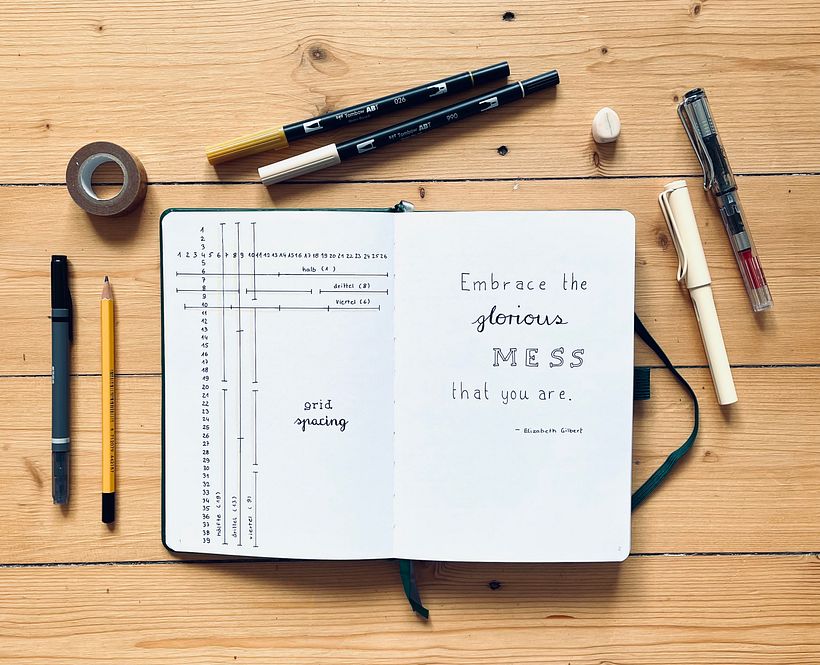 Tombow ABT 026
Tombow ABT 990
1
2
3
1 2 3 4 5 6 7 8 9 10 11 12 13 14 15 16 17 18 19 20 21 22 23 24 25 26
5
6
halb
7
8
drittel (8)
9
10
viertel (6)
11
12
13
14
15
16
17
18
19
20
21
22
23
24
25
26
27
28
29
30
31
32
33
34
35
36
37
38
39
hälfte (19)
drittel (13)
viertel (9)
grid
spacing
Embrace the
glorious
MESS
that you are.
- Elizabeth Gilbert